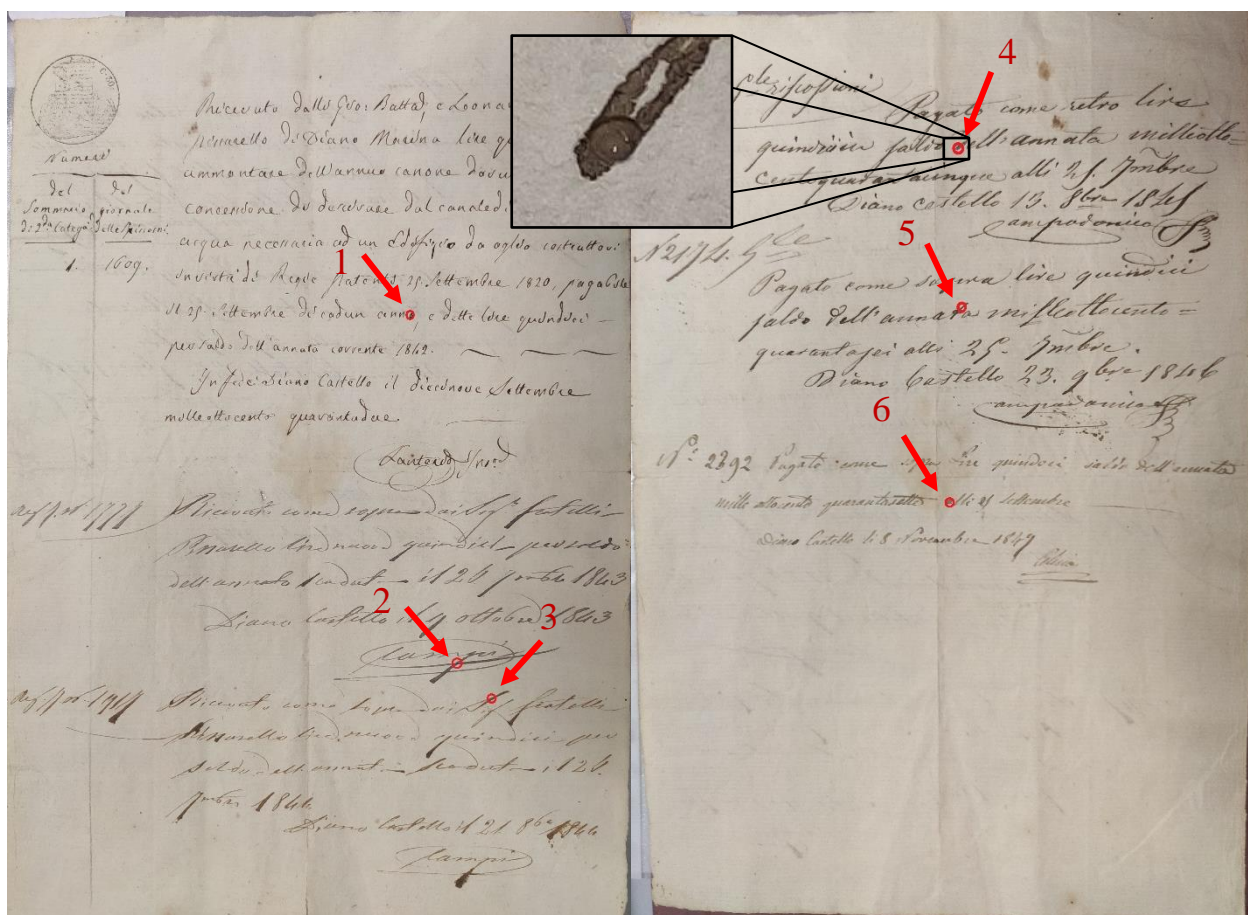 4
Numeri
del
Sommario
di 2da Catega
del
giornale
delle
1. 1609.
Ricevuto dalli Gio: Batta, e Leona
di Diano Marina lire qu
ammontare dell'annuo canone dovu
concessione di derivare dal canale di
acqua necessaria ad un Edifizio da oglio costruttovi
in virtà di Regie Patenti 25. Settembre 1820, pagabile
1
il 25. Settembre di cadun anno, e dette lire quindici
per saldo dell'annata corrente 1842.
In fede Diano Castello il diecinove Settembre
milleottocento quarantadue
Ricevuto come sopra dai Sigi fratelli
quindici per saldo
dell'annata scaduta il 26 7mbre 1843
2
3
Diano Castello il 9 ottobre 1843
Campi
Ricevuto come sopra dai Sigi fratelli
quindici per
saldo dell'annata scaduta il 26.
7mbre 1844
Diano Castello il 21 8bre 1844
Campi
Pagato come retro lire
quindici saldo dell'annata milleotto=
centoquarantacinque alli 25. 7mbre
Diano Castello 13. 8bre 1845
Campodonico
5
N. 2174.
Pagato come sovra lire quindici
saldo dell'annata milleottocento=
quarantasei alli 25. 7mbre.
Diano Castello 23. 9bre 1846
Campodonico
6
No. 2392 Pagato come sopra lire quindici saldo dell'annata
mille ottocento quarantasette alli 25 Settembre
Diano Castello li 8 Novembre 1847